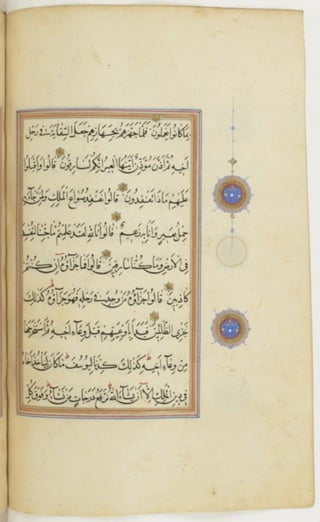 مَا كَانُوا يَعْمَلُونَ فَلَمَّا جَهَّزَهُمْ بِجَهَازِهِمْ جَعَلَ السِّقَايَةَ فِي رَحْلِ
أَخِيهِ ثُمَّ أَذَّنَ مُؤَذِّنٌ أَيَّتُهَا الْعِيرُ إِنَّكُمْ لَسَارِقُونَ قَالُوا وَأَقْبَلُوا
عَلَيْهِمْ مَاذَا تَفْقِدُونَ قَالُوا نَفْقِدُ صُوَاعَ الْمَلِكِ وَلِمَنْ جَاءَ بِهِ
حِمْلُ بَعِيرٍ وَأَنَا بِهِ زَعِيمٌ قَالُوا تَاللَّهِ لَقَدْ عَلِمْتُمْ مَا جِئْنَا لِنُفْسِدَ
فِي الْأَرْضِ وَمَا كُنَّا سَارِقِينَ قَالُوا فَمَا جَزَاؤُهُ إِنْ كُنْتُمْ
كَاذِبِينَ قَالُوا جَزَاؤُهُ مَنْ وُجِدَ فِي رَحْلِهِ فَهُوَ جَزَاؤُهُ كَذَلِكَ
نَجْزِي الظَّالِمِينَ فَبَدَأَ بِأَوْعِيَتِهِمْ قَبْلَ وِعَاءِ أَخِيهِ ثُمَّ اسْتَخْرَجَهَا
مِنْ وِعَاءِ أَخِيهِ كَذَلِكَ كِدْنَا لِيُوسُفَ مَا كَانَ لِيَأْخُذَ أَخَاهُ
فِي دِينِ الْمَلِكِ إِلَّا أَنْ يَشَاءَ اللَّهُ نَرْفَعُ دَرَجَاتٍ مَنْ نَشَاءُ وَفَوْقَ كُلِّ